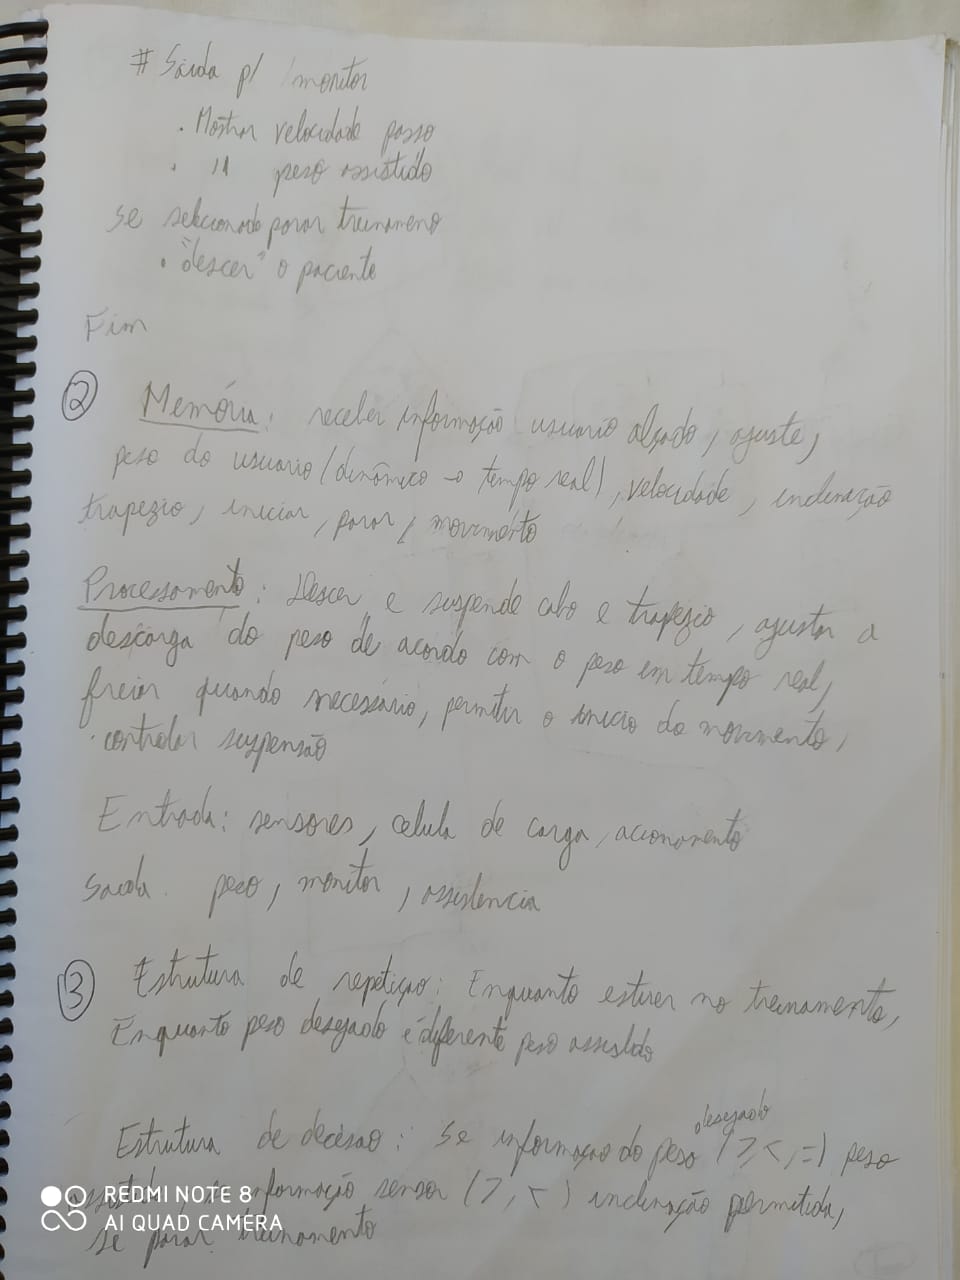 # Saída p/ monitor
. Mostrar velocidade passo
. " peso assistido
Se selecionado parar treinameno
. "descer" o paciente
Fim
2 Memória: receber informação usuario alçado, ajuste,
peso do usuario (dinâmico → tempo real), velocidade, inclinação
trapezio, iniciar, parar, movimento
Processamento: descer e suspende cabo e trapezio, ajustar a
descarga do peso de acordo com o peso em tempo real,
freiar quando necessário, permitir o inicio do movimento,
controlar suspensão
Entrada: sensores, celula de carga, acionamento
Saida peso, monitor, assistencia
3 Estrutura de repetiçao: Enquanto estiver no treinamento,
Enquanto peso desejado é diferente peso assistido
desejado
Estrutura de decisao: Se informação do peso (>, <, =) peso
informação sensor (>, <) inclinação permitida,
se parar treinamento
REDMI NOTE 8
AI QUAD CAMERA